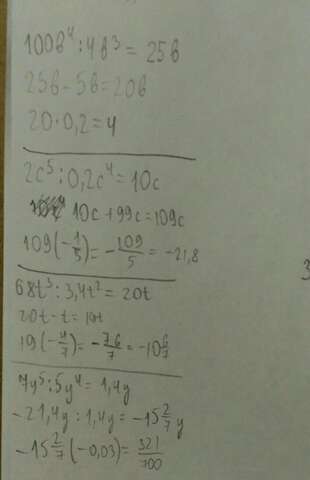 100b⁴:4b³=25b
25b-5b=20b
20·0,2=4
2c⁵:0,2c⁴=10c
10c+99c=109c
109(-1/5)=-109/5=-21,8
68t³:3,4t²=20t
20t-t=19t
19(-4/7)=-76/7=-10 6/7
7y⁵:5y⁴=1,4y
-21,4y:1,4y=-15 2/7 y
-15 2/7(-0,03)=321/700